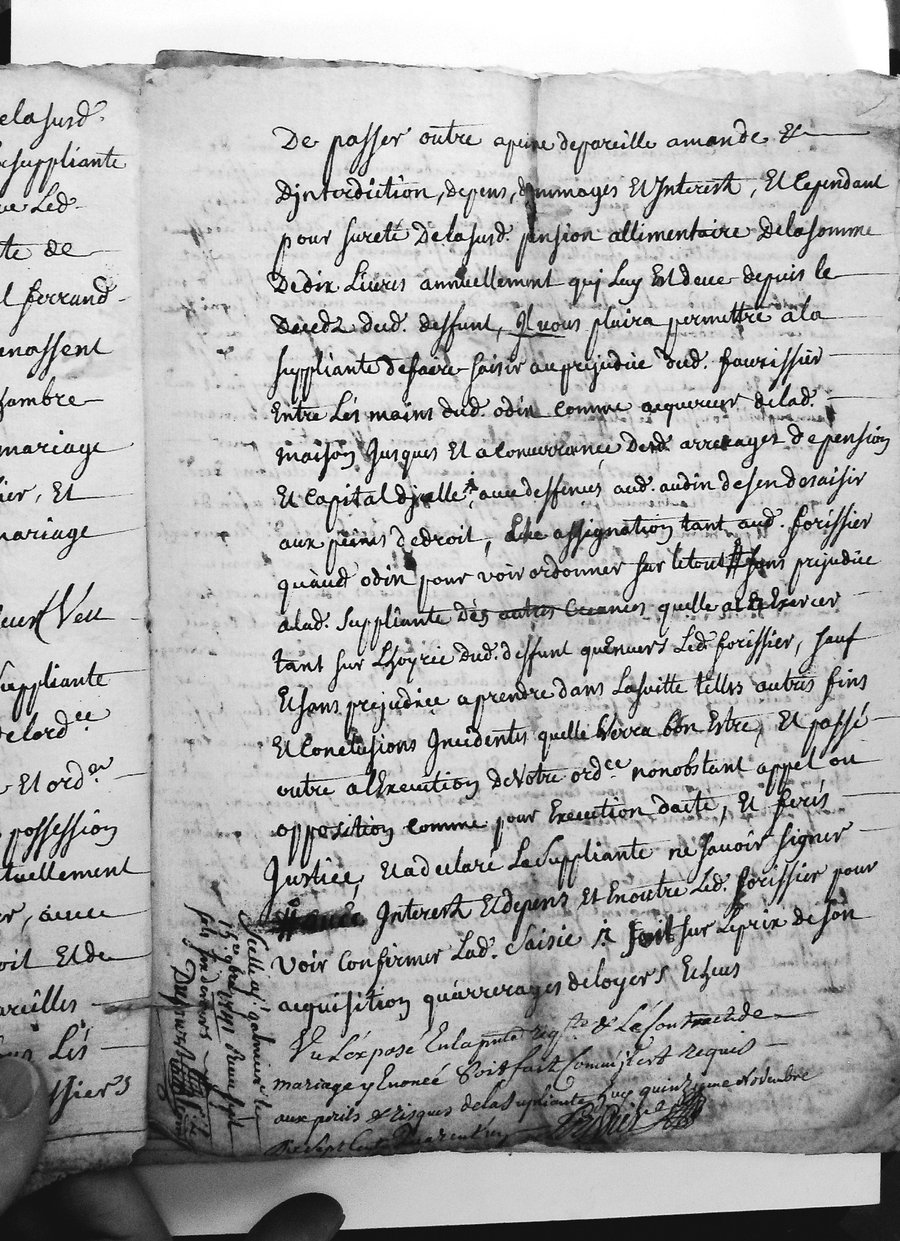 elasusd.
esuppliante
ue Led.
te de
l ferrand
enassent
hambre
mariage
ier, Et
mariage
Veu
suppliante
delord.ce
Et ord.re
possession
tuellement
er, avec
oit Et de
areilles
Les
ssiers
De passer outre apeine depareille amande Et
Djnterdiction, depens, dommages Et Interest, Et Cependant
pour sureté Delasusd. pension allimentaire Delasomme
Dedix Livres annuellement quj Luy Est deue depuis le
Decedz dud. deffunt, Jl vous plaira permettre ala
suppliante defaire saisir au prejudice dud. faurissier
Entre Les mains dud. odin comme acquereur delad.
maison Jusques Et a Concurrance Desd. arrerages depension
Et Capital djcelle, avec deffences aud. audin desendesaisir
aux peines dedroit, assignation tant aud. forissier
quaud odin pour voir ordonner sur letout # sans prejudice
alad. suppliante Des autres Creances quelle a Exercer
tant sur Lhoyrie dud. deffunt quEnvers Led. forissier, sauf
Et sans prejudice aprendre dans Lasuitte telles autres fins
Et Conclusions Jncidentes quelle Verra bon Estre, Et passé
outre alExecution DeVotre ord.ce nonobstant appel ou
opposition comme pour Execution dacte, Et feres
Justice, Et a declaré La Suppliante ne savoir signer
# Interest Et depens Et Enoutre Led. forissier pour
Voir Confirmer Lad. Saisie Sur Leprix de son
acquisition quarrerages deloyers Echeus
Vu Lexposé En la pnte req.te & Le Contract de
mariage y Enoncé Soit fait Comm'Est requis
aux perils & risques de la Supliante quinzieme Novembre
Dix sept Cent
Scellé a le
15e 9bre